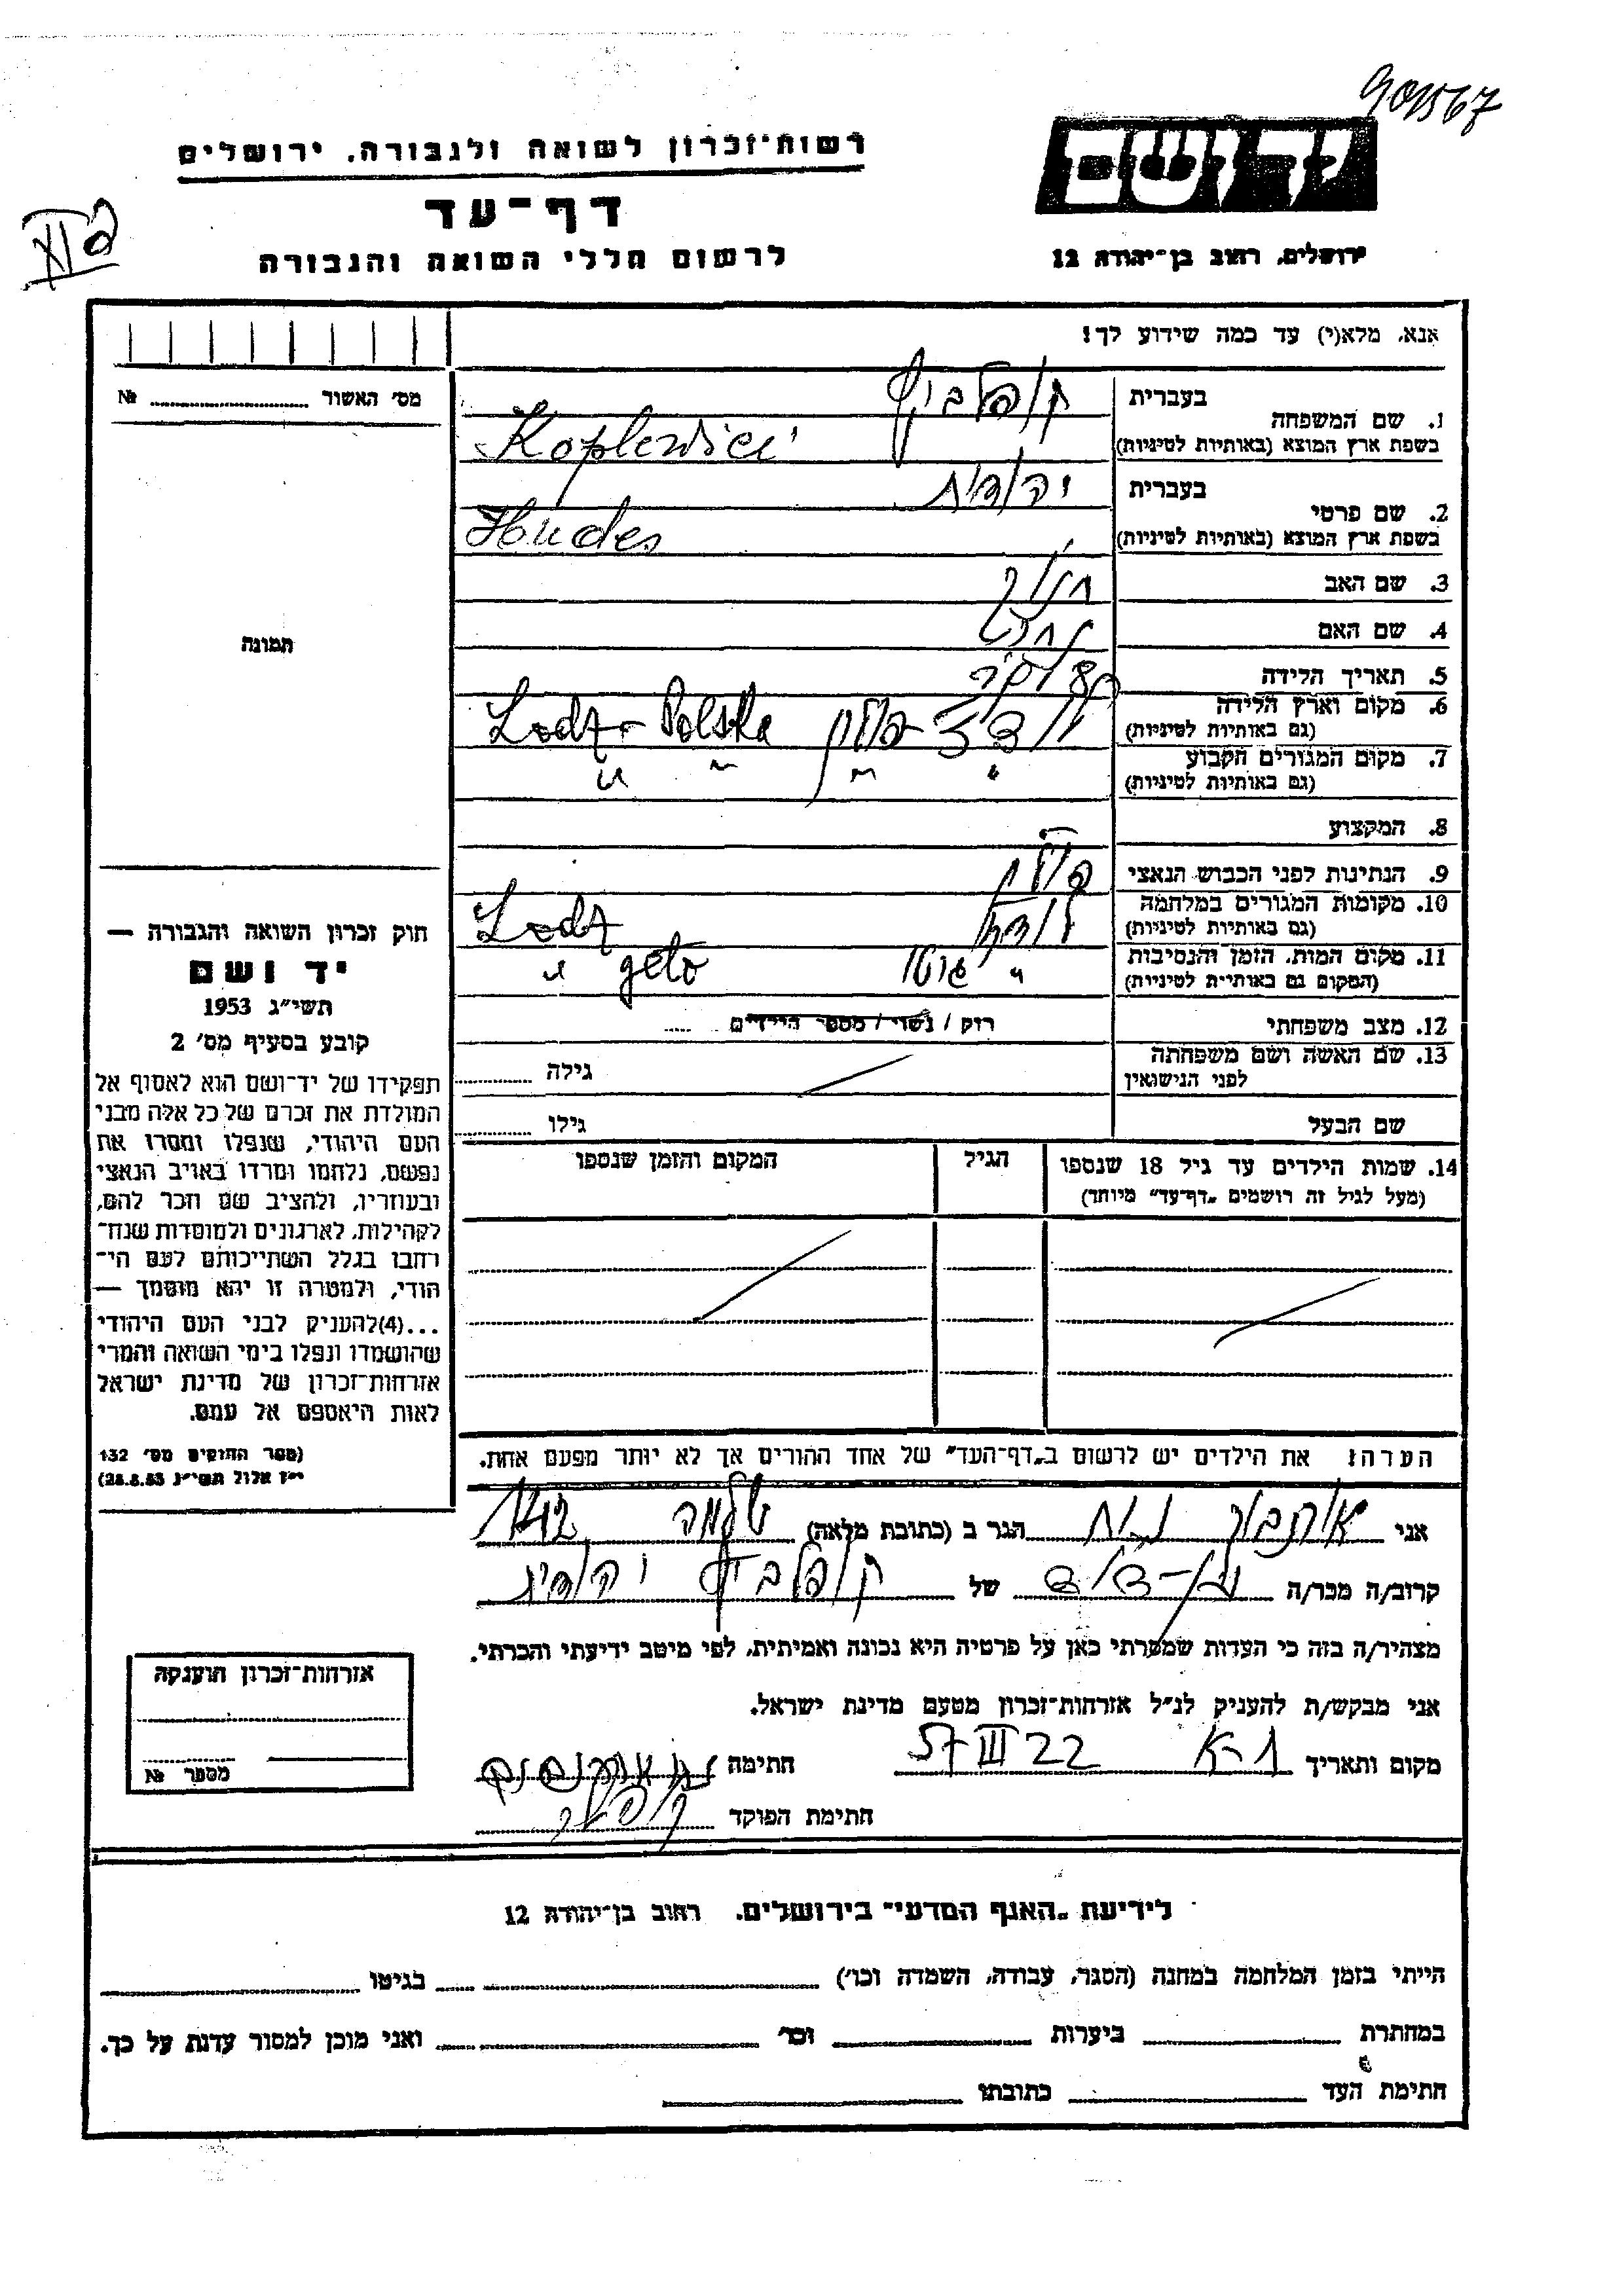 901567
רשות־זכרון לשואה ולגבורה, ירושלים
דף־עד
לרשום חללי השואה והגבורה
יד ושם
ירושלים, רחוב בן־יהודה 12
אנא, מלא(י) עד כמה שידוע לך!
מס׳ האשור № 
1. שם המשפחה בעברית קופלביץ
בשפת ארץ המוצא (באותיות לטיניות) Koplewicz
2. שם פרטי בעברית יהודית
בשפת ארץ המוצא (באותיות לטיניות) Hudes
3. שם האב חנוך
4. שם האם
5. תאריך הלידה
6. מקום וארץ הלידה לודז פולין Lodz - Polska
(גם באותיות לטיניות)
7. מקום המגורים הקבוע " " " "
(גם באותיות לטיניות)
8. המקצוע
9. הנתינות לפני הכבוש הנאצי פולין
10. מקומות המגורים במלחמה לודז Lodz
(גם באותיות לטיניות)
11. מקום המות, הזמן והנסיבות " גיטו " geto
(המקום גם באותיות לטיניות)
12. מצב משפחתי רווק / נשוי / מספר הילדים
13. שם האשה ושם משפחתה גילה
לפני הנישואין
שם הבעל גילו
14. שמות הילדים עד גיל 18 שנספו הגיל המקום והזמן שנספו
(מעל לגיל זה רושמים „דף־עד" מיוחד)
הערה: את הילדים יש לרשום ב„דף־העד" של אחד ההורים אך לא יותר מפעם אחת.
תמונה
חוק זכרון השואה והגבורה —
יד ושם
תשי״ג 1953
קובע בסעיף מס׳ 2
תפקידו של יד־ושם הוא לאסוף אל
המולדת את זכרם של כל אלה מבני
העם היהודי, שנפלו ומסרו את
נפשם, נלחמו ומרדו באויב הנאצי
ובעוזריו, ולהציב שם וזכר להם,
לקהילות, לארגונים ולמוסדות שנח־
רבו בגלל השתייכותם לעם הי־
הודי, ולמטרה זו יהא מוסמך —
...(4) להעניק לבני העם היהודי
שהושמדו ונפלו בימי השואה והמרי
אזרחות־זכרון של מדינת ישראל
לאות היאספם אל עמם.
(ספר החוקים מס׳ 132
י״ז אלול תשי״ג 28.8.53)
אני הגר ב (כתובת מלאה) שלמה 142
קרוב/ה מכר/ה בן־דוד של קופלביץ יהודית
מצהיר/ה בזה כי העדות שמסרתי כאן על פרטיה היא נכונה ואמיתית, לפי מיטב ידיעתי והכרתי.
אני מבקש/ת להעניק לנ״ל אזרחות־זכרון מטעם מדינת ישראל.
מקום ותאריך ת-א 22 III 57 חתימה
חתימת הפוקד
אזרחות־זכרון הוענקה
מספר №
לידיעת „האגף המדעי" בירושלים, רחוב בן־יהודה 12
הייתי בזמן המלחמה במחנה (הסגר, עבודה, השמדה וכו׳) בגיטו
במחתרת ביערות וכו׳ ואני מוכן למסור עדות על כך.
חתימת העד כתובתו